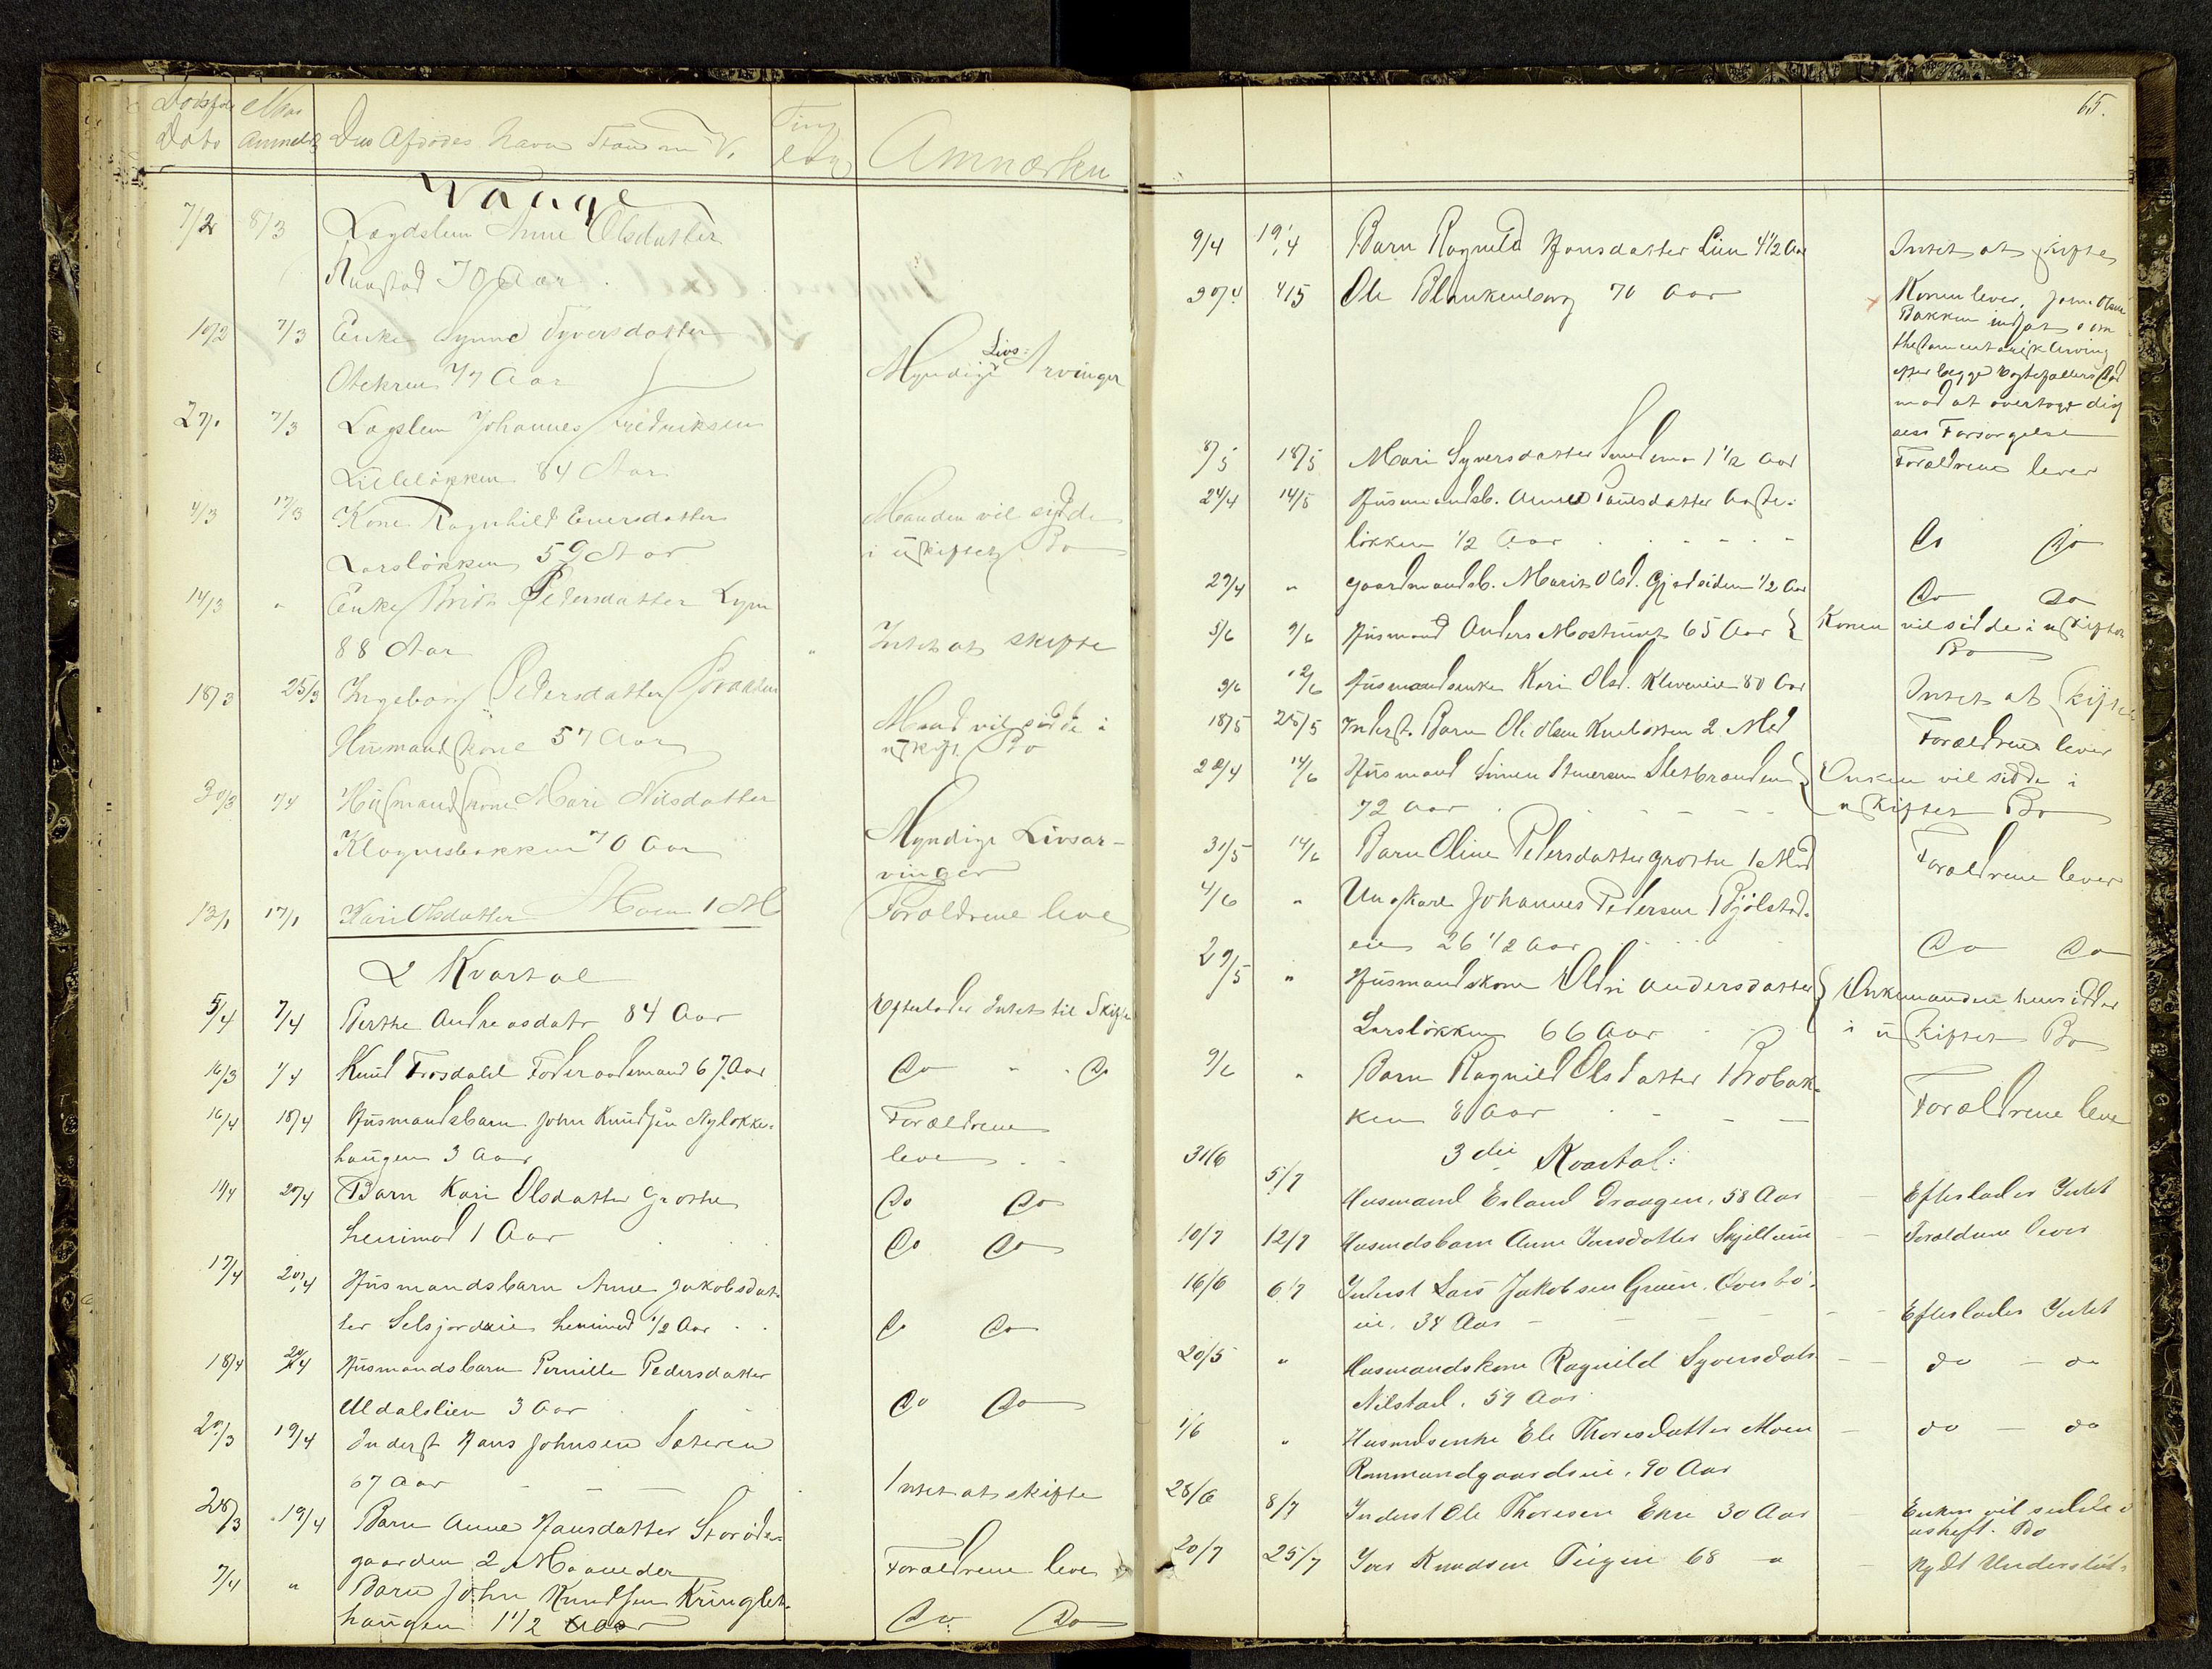 Dødsfalds Dato Naar anmeldt Den Afdødes Navn Stand m. V. Ting Anmærkn
Vaage
7/2 8/3 Lægdslem Anne Olsdatter
70 Aar
10/2 7/3 Enke Synne Syversdatter
77 Aar Myndige Livs: Arvinger
7/3 Lagslem Johannes Fredriksen
Lilleløkken 84 Aar
4/3 17/3 Kone Ragnhild Enersdatter Manden vil sidde
Larsløkken 59 Aar i uskiftet Bo
14/3 " Enke Pedersdatter
88 Aar " Intet at skifte
18/3 25/3 Ingeborg Pedersdatter Braaten
Husmandskone 57 Aar Mand vil sidde i
uskift. Bo
30/3 7/4 Husmandskone Mari Nilsdatter
70 Aar Myndige Livsar-
vinger
13/1 17/1 Kari Olsdatter Moen 1 M Forældrene leve
2 Kvartal
5/4 7/4 Berthe Andreasdatr 84 Aar Efterlader Intet til Skifte
16/3 7/4 Knud Frosdahl Foderaadsmand 67 Aar Do " Do
16/4 18/4 Husmandsbarn John Knudsen Nyløkke-
haugen 3 Aar Forældrene
leve
11/4 20/4 Barn Kari Olsdatter Grothe
henimod 1 Aar Do Do
17/4 20/4 Husmandsbarn Anne Jakobsdat-
ter Selsjordeie henimod 1/2 Aar Do Do
18/4 20/4 Husmandsbarn Pernille Pedersdatter
Uldalslien 3 Aar Do Do
20/3 19/4 Inderst Hans Johnsen Sæteren
67 Aar Intet at skifte
28/3 19/4 Barn Anne Hansdatter
gaarden 2 Maaneder Forældrene leve
7/4 " Barn John Knudsen Kringlet-
haugen 1 1/2 Aar Do Do
65.
9/4 19/4 Barn Ragnild Hansdatter Lien 4 1/2 Aar Intet at skifte
30/4 4/5 Ole Blankenborg 70 Aar Konen lever. John Olsen
Bakken indsat som
thestamentarisk Arving
efter begge Egtefællers Død
mod at overtage dis-
ses Forsørgelse
8/5 18/5 Mari Syversdatter 1 1/2 Aar Forældrene lever
24/4 14/5 Husmandsb. Anne Paulsdatter
løkken 1/2 Aar Do Do
27/4 " Gaardmandsb. Marit Olsd. 1/2 Aar Do Do
5/6 9/6 Husmand Anders 65 Aar Konen vil sidde i uskiftet
Bo
9/6 12/6 Husmandsenke Kari Olsd. 80 Aar Intet at skifte
18/5 25/5 Inderst. Barn Ole Olsen 2 Md Forældrene lever
14/6 Husmand Simen Sletbranden Enken vil sidde i
72 Aar uskiftet Bo
31/5 14/6 Barn Oline Pedersdatter Grothe 1 Md Forældrene lever
4/6 " Ungkarl Johannes Pedersen Bjølstad-
eie 26 1/2 Aar Do Do
29/5 " Husmandskone Oldri Andersdatter Enkemanden hensidder
Larsløkken 66 Aar i uskiftet Bo
9/6 " Barn Ragnild Olsdatter Brobak-
ken 8 Aar Forældrene leve
3die Kvartal:
31/6 5/7 Husmand Erland Draagen, 58 Aar Efterlader Intet
10/7 12/7 Husmdsbarn Anne Iversdatter Forældrene lever
16/6 6/7 Inderst Lars Jakobsen
eie. 34 Aar Efterlader Intet
20/5 " Husmandskone Ragnild Syversdatr
Nilstad. 59 Aar do - do
1/6 " Husmdsenke Ele Thoresdatter Moen
Rommundgaardseie. 90 Aar do - do
28/6 8/7 Inderst Ole Thoresen Ekre 30 Aar Enken vil sidde i
uskift. Bo
20/7 25/7 Iver Knudsen 68 - " Nydt Understøt-